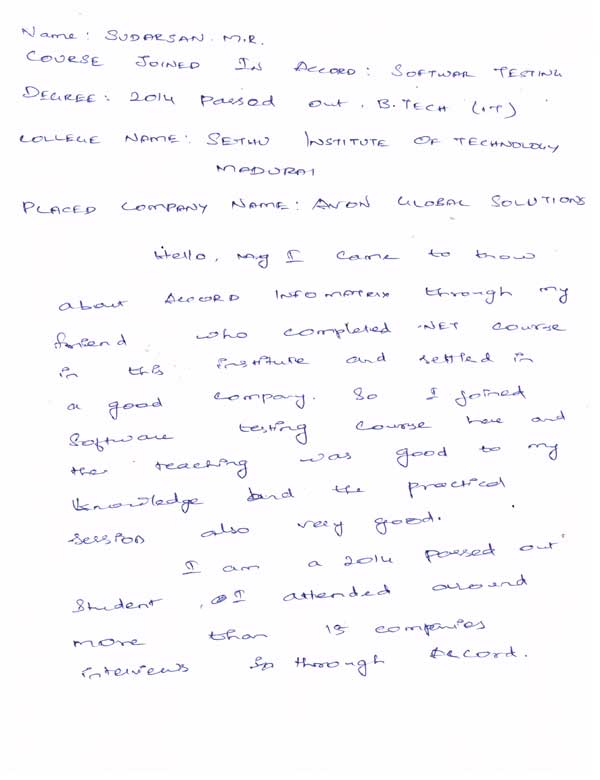 Name: SUDARSAN. M.R.
COURSE JOINED IN ACCORD: SOFTWAR TESTING
DEGREE: 2014 Passed out. B.TECH (IT)
COLLEGE NAME: SETHU INSTITUTE OF TECHNOLOGY
MADURAI
PLACED COMPANY NAME: AVON GLOBAL SOLUTIONS
Hello, my I came to know
about ACCORD INFOMATRIX through my
friend who completed .NET COURSE
in this institute and settled in
a good company. So I joined
Software testing course here and
the teaching was good to my
knowledge and the practical
session also very good.
I am a 2014 passed out
Student, I attended around
more than 15 companies
interviews so through Accord.